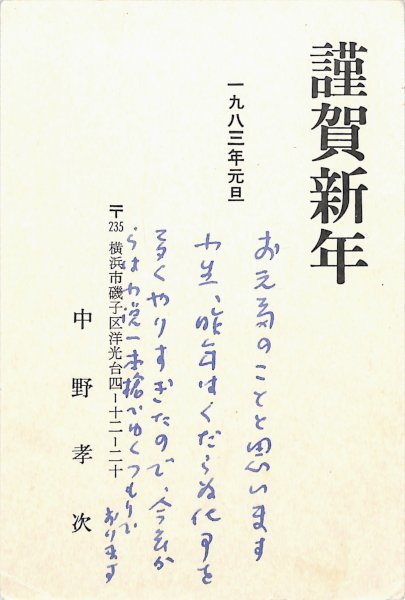 謹賀新年
一九八三年元旦
お元気のことと思います
小生、昨年はくだらぬ仕事を
多くやりすぎたので、今年か
らは小説一本槍でゆくつもりで
おります
〒235 横浜市磯子区洋光台四ー十二ー二十
中野孝次